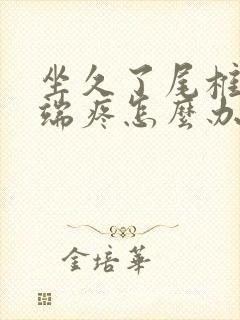 坐久了尾椎
端疼怎麽办
金培華